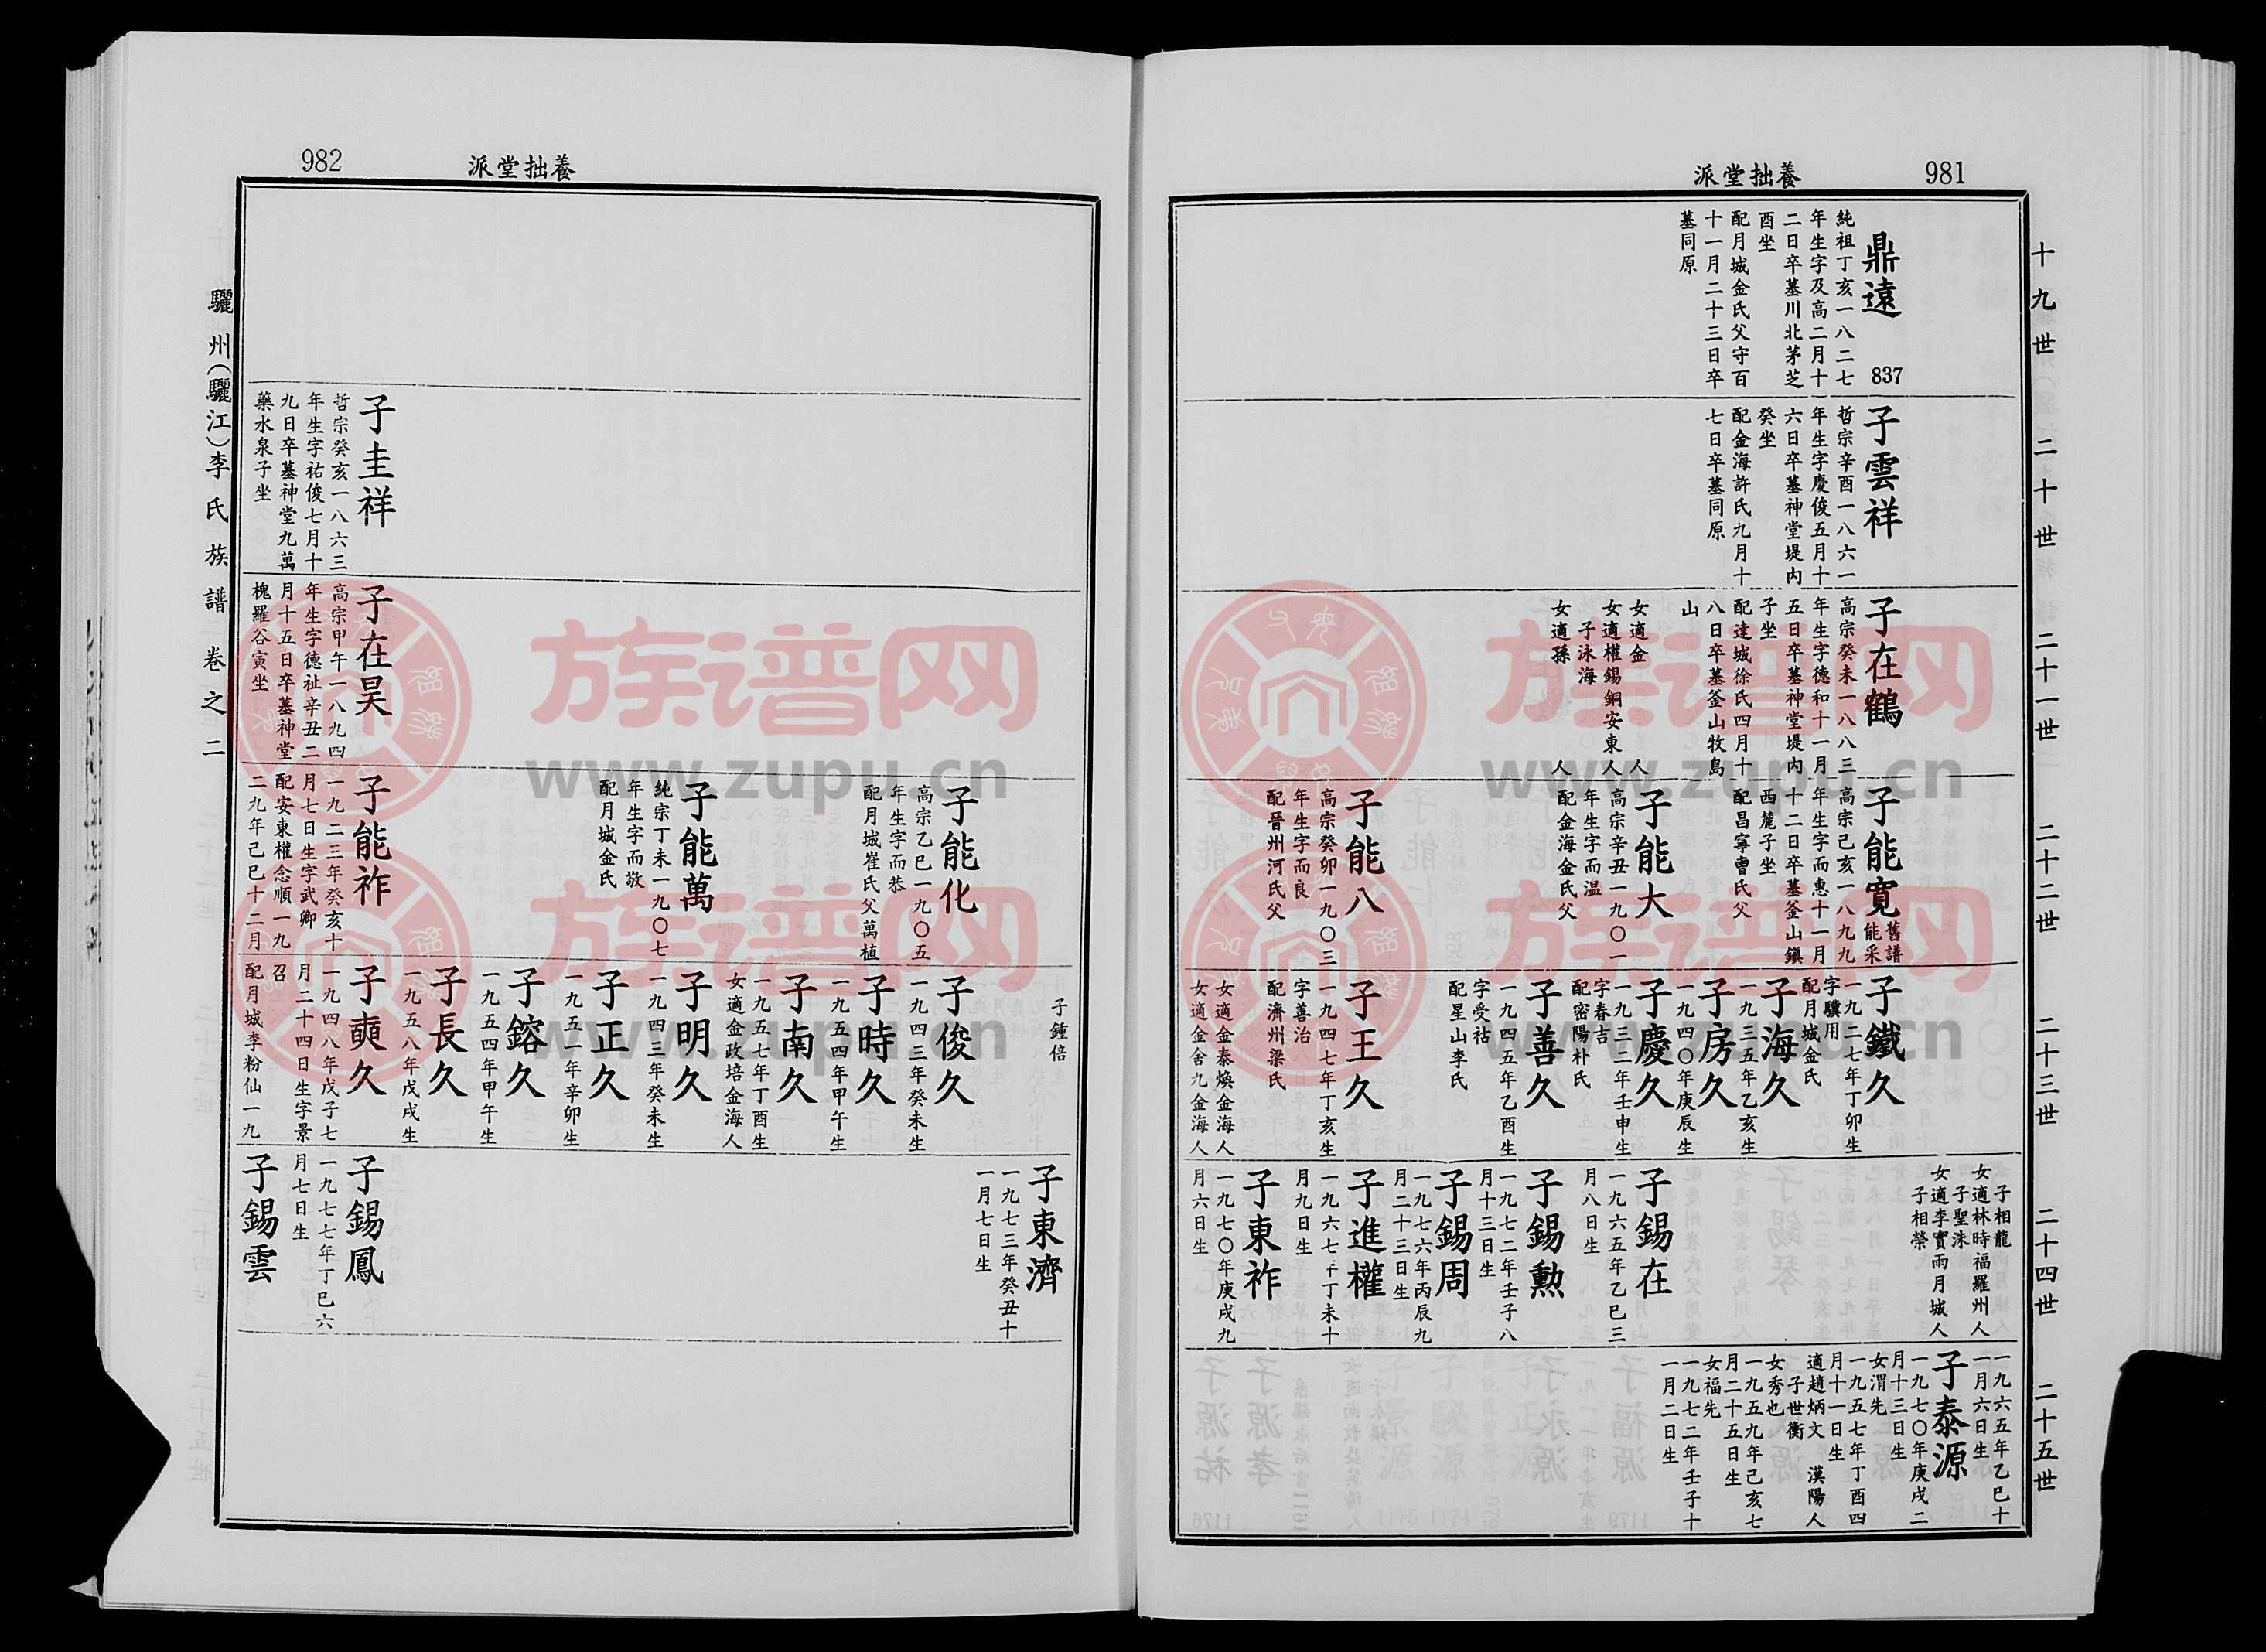 981
派堂拙養
十九世
二十世
二十一世
二十二世
二十三世
二十四世
二十五世
鼎遠
837
純祖丁亥一八二七
年生字及高二月十
二日卒墓川北茅芝
酉坐
配月城金氏父守百
十一月二十三日卒
墓同原
子雲祥
哲宗辛酉一八六一
年生字慶俊五月十
六日卒墓神堂堤内
癸坐
配金海許氏九月十
七日卒墓同原
子在鶴
高宗癸未一八八三
年生字德和十一月
五日卒墓神堂堤内
子坐
配達城徐氏四月十
八日卒墓釜山牧島
山
女適金 人
女適權錫銅安東人
子泳海
女適孫 人
子能寛
舊譜
能采
高宗己亥一八九九
年生字而惠十一月
十二日卒墓釜山鎭
西麓子坐
配昌寧曺氏父
子能大
高宗辛丑一九〇一
年生字而温
配金海金氏父
子能八
高宗癸卯一九〇三
年生字而良
配晉州河氏父
子鐵久
一九二七年丁卯生
字驥用
配月城金氏
子海久
一九三五年乙亥生
子房久
一九四〇年庚辰生
子慶久
一九三二年壬申生
字春吉
配密陽朴氏
子善久
一九四五年乙酉生
字受祜
配星山李氏
子王久
一九四七年丁亥生
字善治
配濟州梁氏
女適金泰煥金海人
女適金舍九金海人
子相龍
女適林時福羅州人
子聖洙
女適李實雨月城人
子相榮
子錫在
一九六五年乙巳三
月八日生
子錫勲
一九七二年壬子八
月十三日生
子錫周
一九七六年丙辰九
月二十三日生
子進權
一九六七年丁未十
月九日生
子東祚
一九七〇年庚戌九
月六日生
一九六五年乙巳十
一月六日生
子泰源
一九七〇年庚戌二
月十三日生
女渭先
一九五七年丁酉四
月十一日生
適趙炳文 漢陽人
子世衡
女秀也
一九五九年己亥七
月二十五日生
女福先
一九七二年壬子十
一月二日生
982
派堂拙養
驪州(驪江)李氏族譜 卷之二
子圭祥
哲宗癸亥一八六三
年生字祐俊七月十
九日卒墓神堂九萬
藥水泉子坐
子在昊
高宗甲午一八九四
年生字德祉辛丑二
月十五日卒墓神堂
槐羅谷寅坐
子能化
高宗乙巳一九〇五
年生字而恭
配月城崔氏父萬植
子能萬
純宗丁未一九〇七
年生字而敬
配月城金氏
子能祚
一九二三年癸亥十
月七日生字武卿
配安東權念順一九
二九年己巳十二月
子鍾倍
子俊久
一九四三年癸未生
子時久
一九五四年甲午生
子南久
一九五七年丁酉生
女適金政培金海人
子明久
一九四三年癸未生
子正久
一九五一年辛卯生
子鎔久
一九五四年甲午生
子長久
一九五八年戊戌生
子奭久
一九四八年戊子七
月二十四日生字景
召
配月城李粉仙一九
子東濟
一九七三年癸丑十
一月七日生
子錫鳳
一九七七年丁巳六
月七日生
子錫雲
族谱网
www.zupu.cn
族谱网
www.zupu.cn
族谱网
www.zupu.cn
族谱网
www.zupu.cn